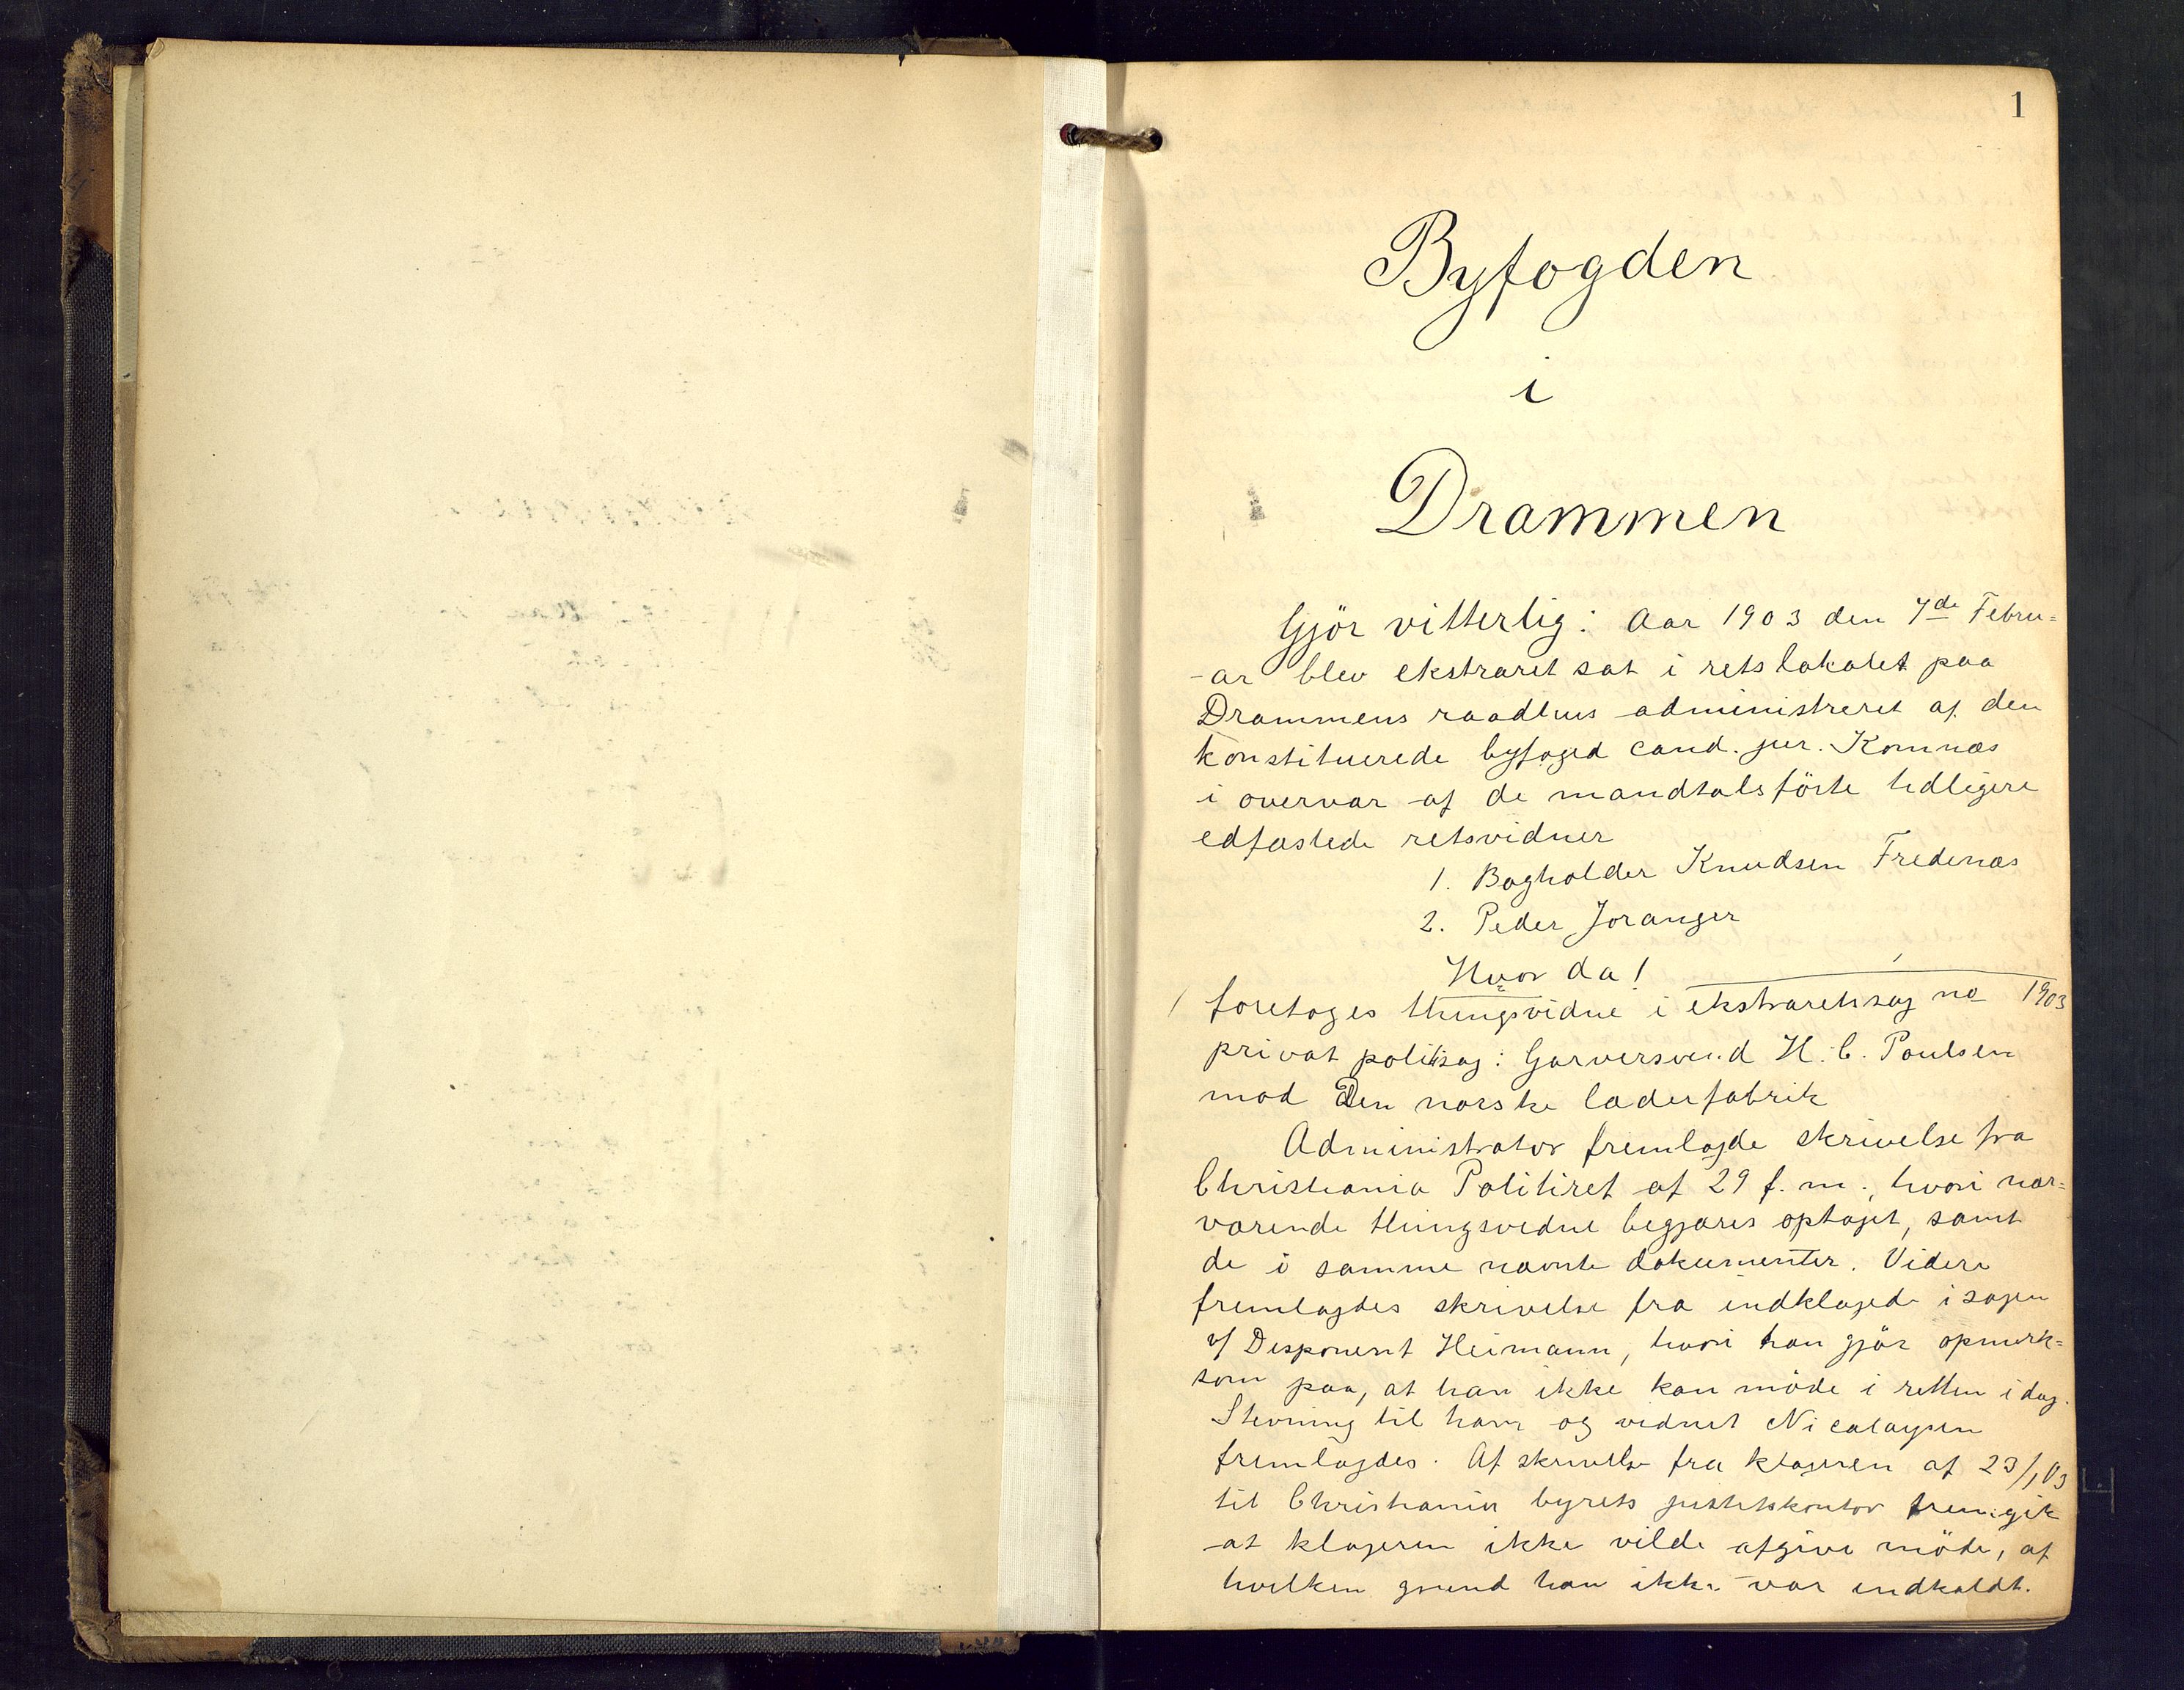 1
Byfogden
i
Drammen
Gjör vitterlig: Aar 1903 den 7de Febru=
ar blev ekstraret sat i retslokalet paa
Drammens raadhus administreret af den
konstituerede byfoged cand. jur. Komnæs
i overvær af de mandtalsförte tidligere
edfæstede retsvidner
1. Bogholder Knudsen Fredenæs
2. Peder Joranger
Hvor da!
foretoges thingsvidne i ekstraretssag no 1903
privat politisag: Garversvend H. C. Poulsen
mod Den norske læderfabrik
Administrator fremlagde skrivelse fra
Christiania Politiret af 29 f. m., hvori nær=
værende thingsvidne begjæres optaget, samt
de i samme nævnte dokumenter. Videre
fremlagdes skrivelse fra indklagede i sagen
v/ Disponent Heimann, hvori han gjör opmærk=
som paa, at han ikke kan möde i retten idag.
Stevning til ham og vidnet Nicolaysen
fremlagdes. Af skrivelse fra klageren af 23/1 03
til Christiania byrets justitskontor fremgik
at klageren ikke vilde afgive möde, af
hvilken grund han ikke var indkaldt.